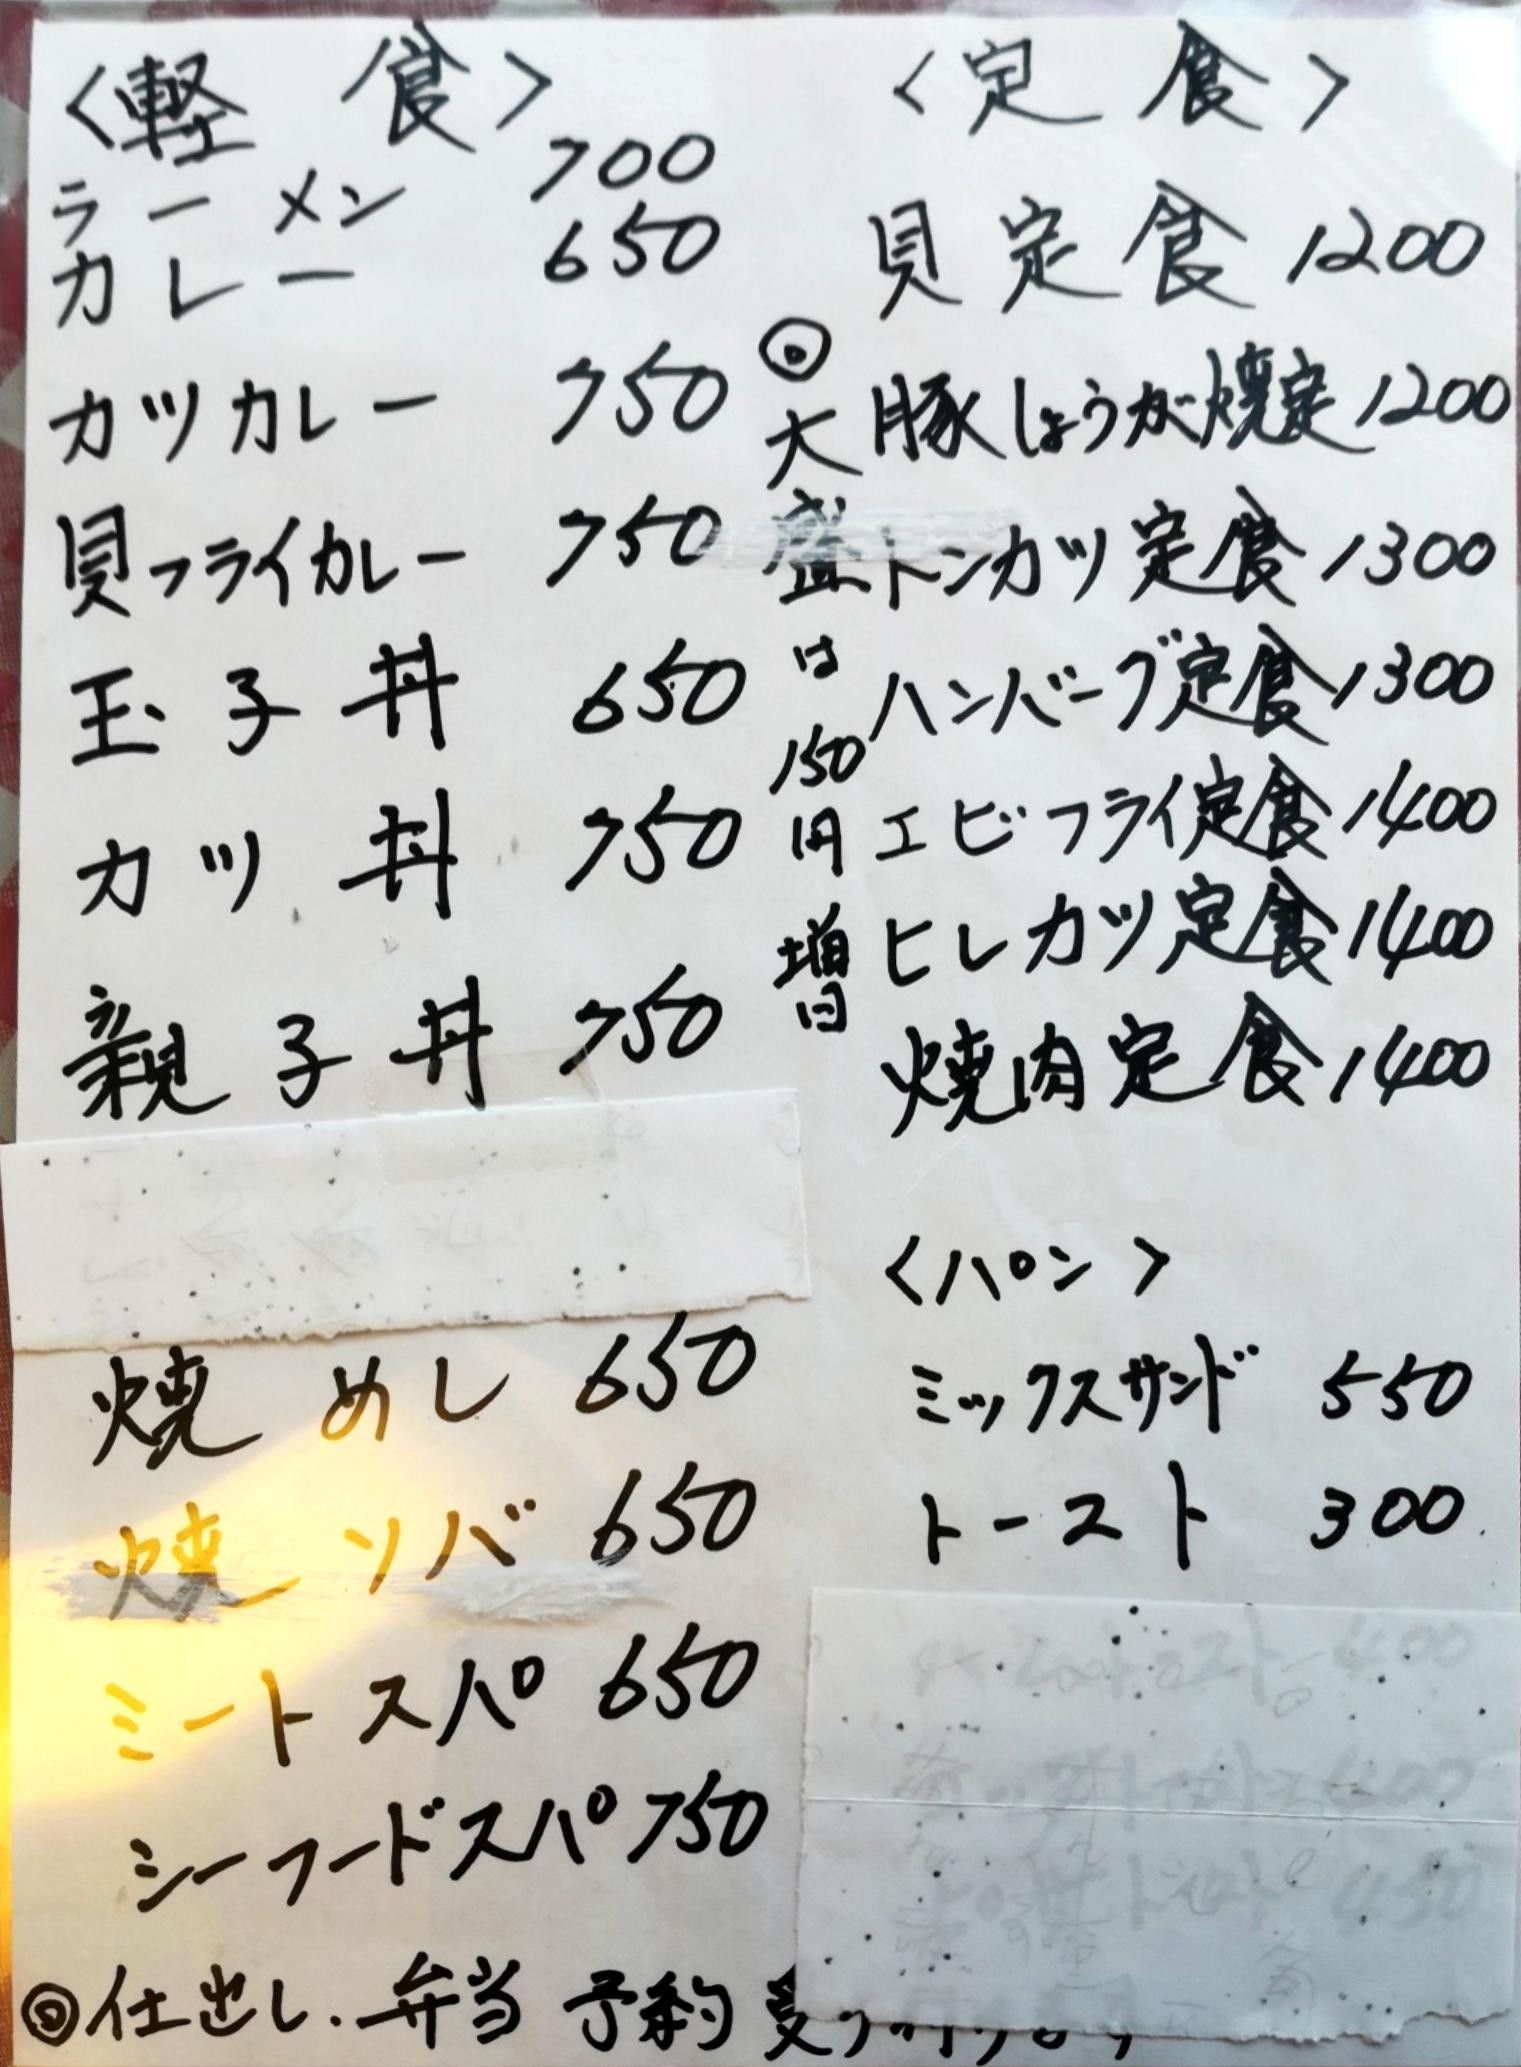 〈軽食〉
ラーメン 700
カレー 650
カツカレー 750
貝フライカレー 750
玉子丼 650
カツ丼 750
親子丼 750
焼めし 650
焼ソバ 650
ミートスパ 650
シーフードスパ 750
◎大盛は150円増
〈定食〉
貝定食 1200
豚しょうが焼定 1200
トンカツ定食 1300
ハンバーグ定食 1300
エビフライ定食 1400
ヒレカツ定食 1400
焼肉定食 1400
〈パン〉
ミックスサンド 550
トースト 300
◎仕出し.弁当 予約